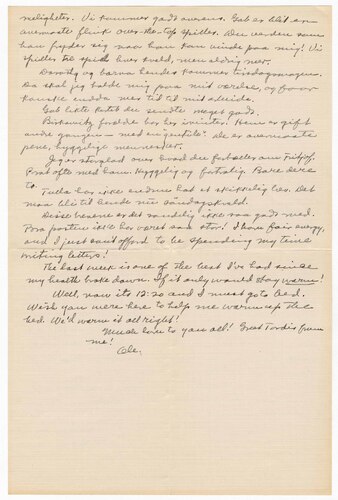 neligheter. Vi kommer godt overens. Gab er blit en
overmåte flink over-the-top spiller. Du
han fryder sig naar han kan vinde paa mig! Vi
spiller to spill hver kveld, men aldrig mer.
Dorothy og barna hendes kommer tirsdagsmorgen.
Da skal jeg holde mig paa mit værelse, og
kanske endda mer tid til mit arbeide.
Gab likte kortet du sendte meget godt.
Birkowitz fridde hos her ivinter. Han er gift
andre gangen — med en "gentile". De er overmaate
pene, hyggelige mennesker.
Jeg er storglad over hvad du fortæller om Fritjof.
Prat ofte med ham hyggelig og fortrolig. Bare dere
to.
Tulla har ikke endnu hat et skikkelig
maa bli til hende nu søndagskveld.
Disse benene er det sandelig ikke saa godt med.
Paa posten ikke har været saa stor! I have fair energy,
and I just can't afford to be spending my time
writing letters!
The last week is one of the best I've had since
my health broke down. If it only would stay warm!
Well, now its 12:20 and I must go to bed.
Wish you were here to help me warm up the
bed. We'd warm it all right!
Much love to you all! Greet Tordis from
me!
Ole.